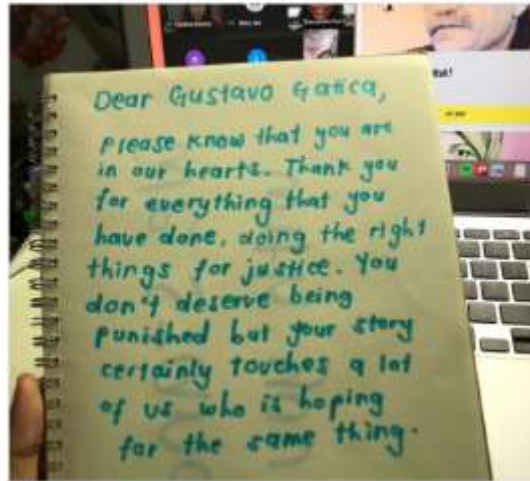 Dear Gustavo Gatica,
Please know that you are
in our hearts. Thank you
for everything that you
have done, doing the right
things for justice. You
don't deserve being
punished but your story
certainly touches a lot
of us who is hoping
for the same thing.